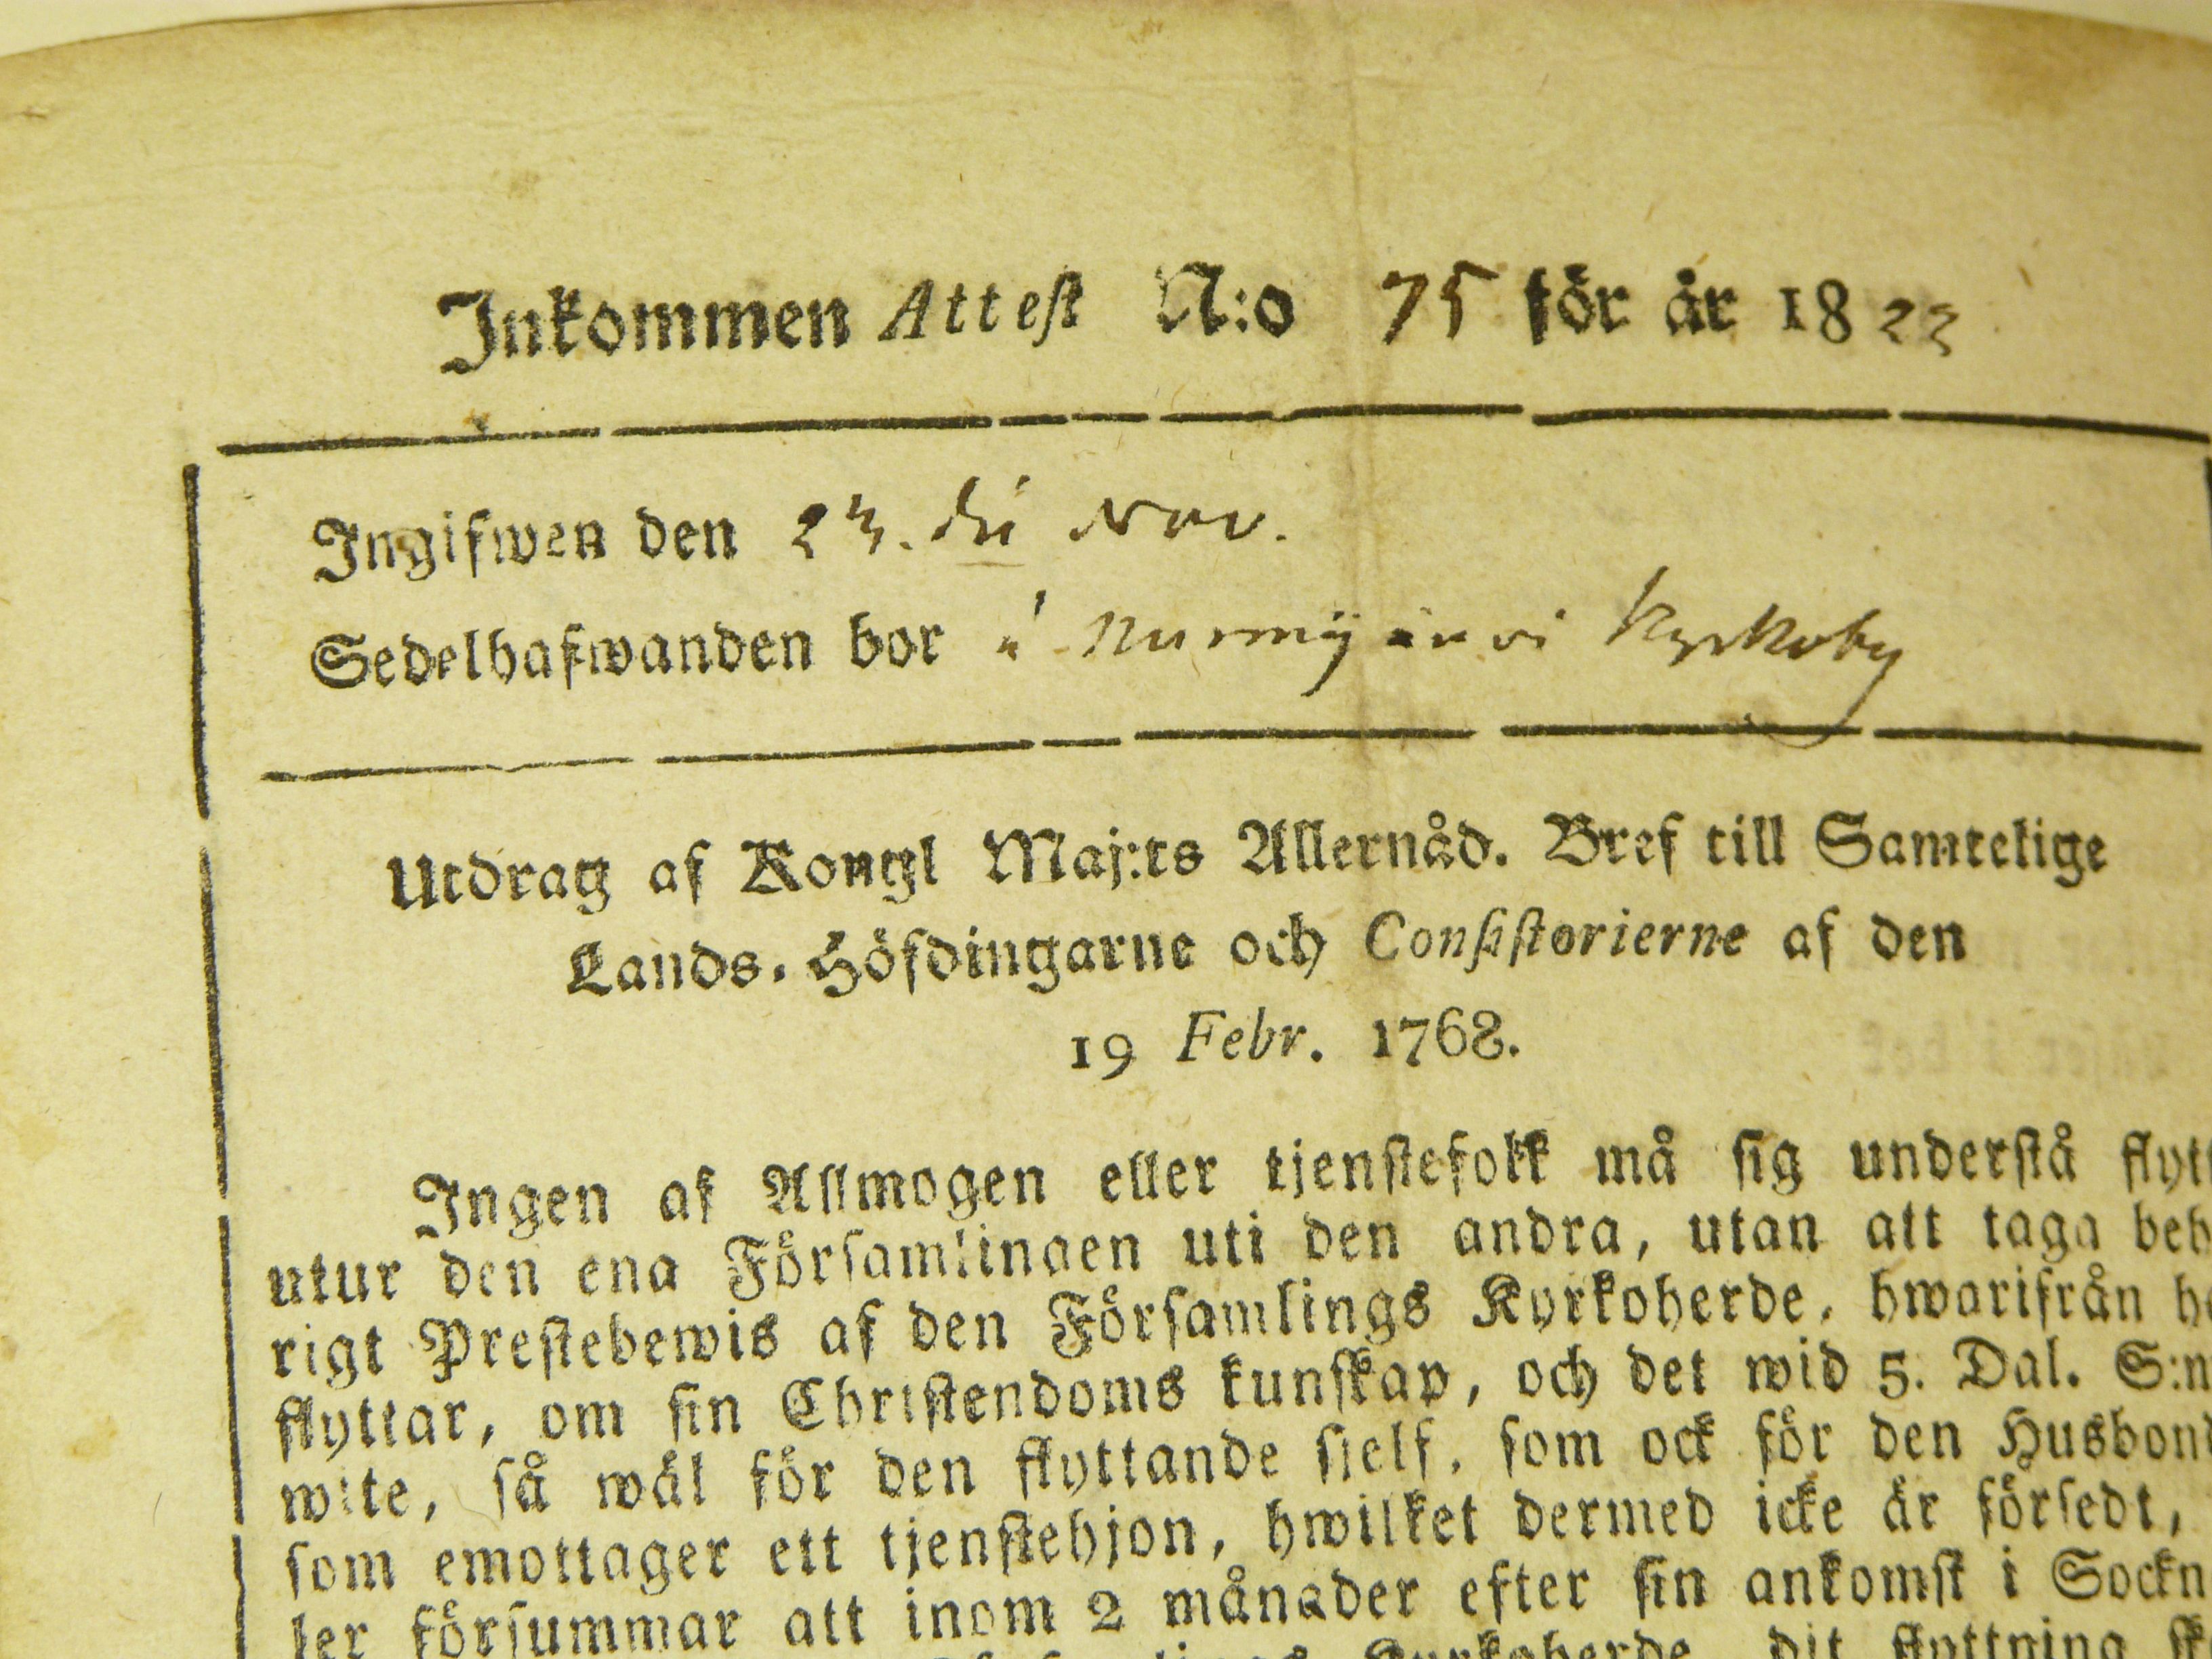 Inkommen Attest N:o 75 för år 1823
Ingifwen den 23. Nov.
Sedelhafwanden bor i Nurmijärvi Kyrkoby
Utdrag af Kongl Maj:ts Allernåd. Bref till Samtelige
Lands-Höfdingarne och Consistorierne af den
19 Febr. 1768.
Ingen af Allmogen eller tjenstefolk må sig understå flytt
utur den ena Församlingen uti den andra, utan att taga beh
rigt Prestebewis af den Församlings Kyrkoherde, hwarifrån ha
flyttar, om sin Christendoms kunskap, och det wid 5. Dal. S:m
wite, så wäl för den flyttande sjelf, som ock för den Husbond
som emottager ett tjenstehjon, hwilket dermed icke är försedt,
ler försummar att inom 2 månader efter sin ankomst i Sockn
Kyrkoherde, dit flyttning sk